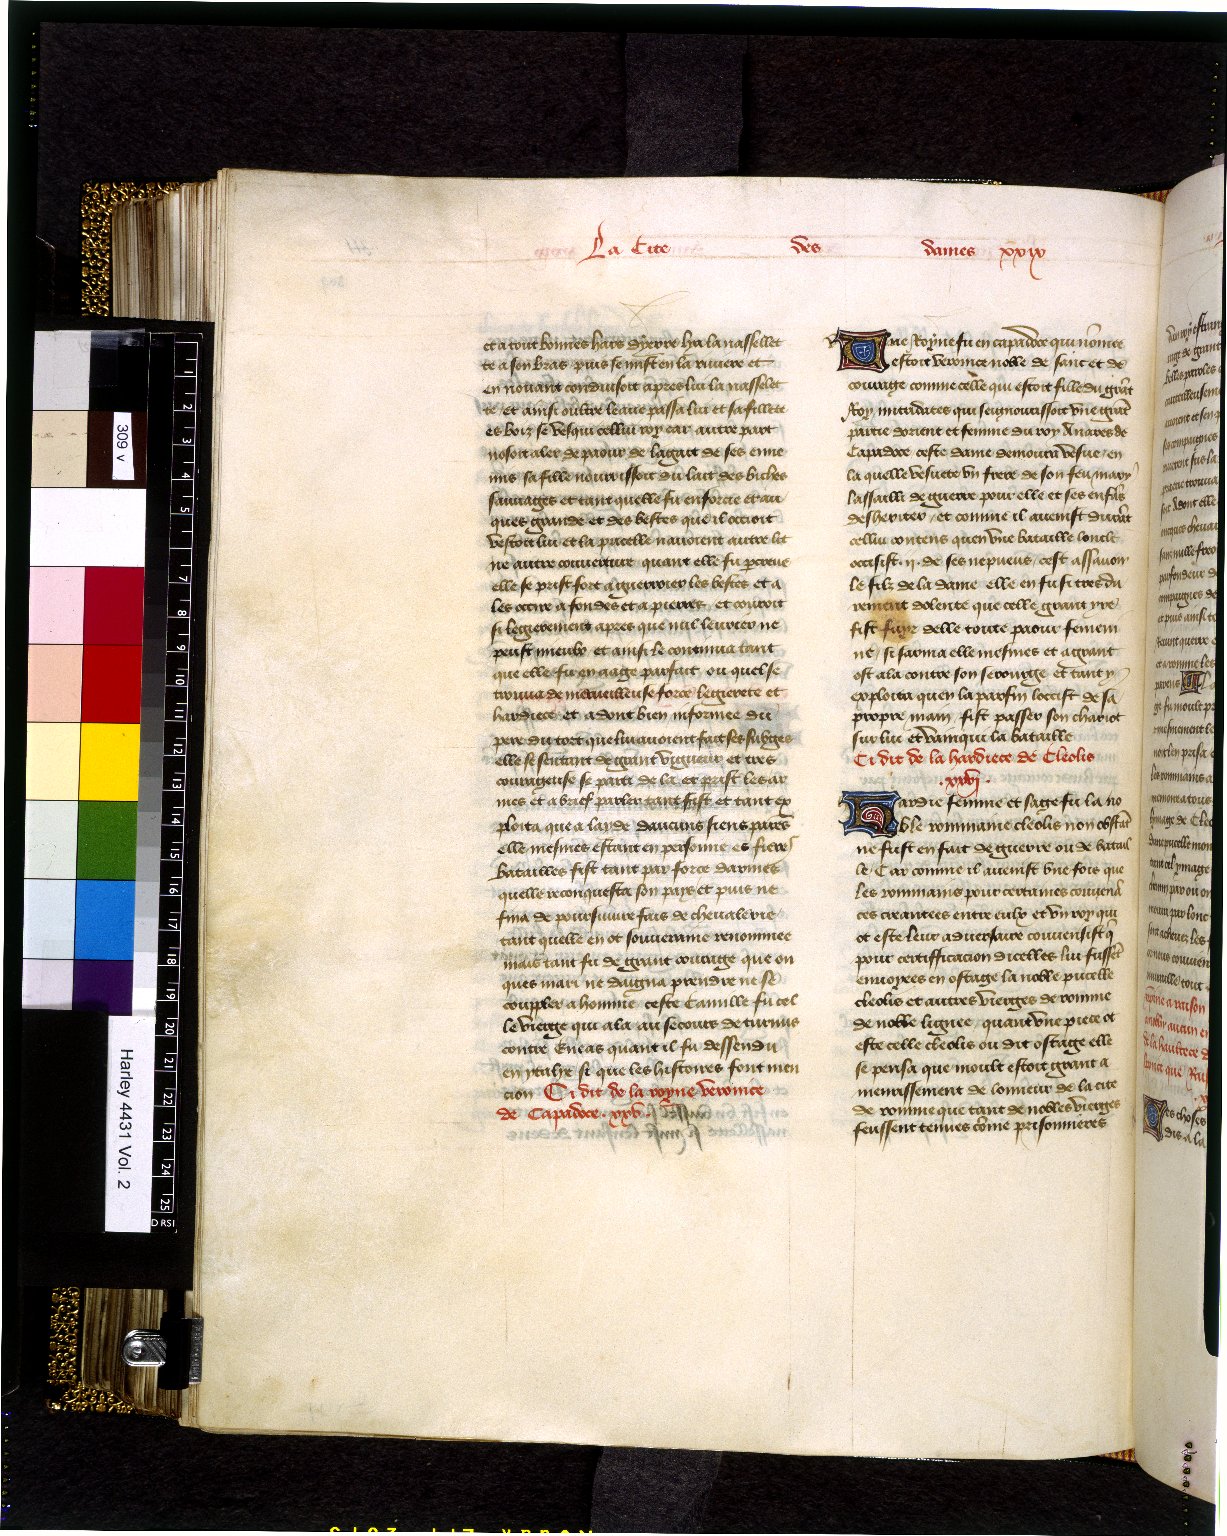 La Cite des dames xxix
et a tout bonnes hars dyerre lya la nassellet
te a son bras puis se mist en la riuiere et
en nouant conduisoit apres lui la nasselet
te et ainsi oultre leaue passa lui et sa fillete
es boiz se vesqui cellui roy car autre part
nosoit aler de paour de lagait de ses enne
mis sa fille nourrissoit du lait des biches
sauuages et tant quelle fu enforcie et au
ques grande et des bestes que il occioit
vestoit lui et la pucelle nauoient autre lit
ne autre couuerture quant elle fu parcreue
elle se prist fort a guerroier les bestes et a
les occire a fondes et a pierres et couroit
si legierement apres que nul leurier ne
peust mieulx et ainsi le continua tant
que elle fu en aage parfait ou quel se
trouua de merueilleuse force legierete et
hardiece et adont bien informee du
pere du tort que lui auoient fait ses subges
elle se sentant de grant vigueur et tres
courageuse se parti de la et prist les ar
mes et a brief parler tant fist et tant ex
ploita que a layde daucuns siens parens
elle mesmes estant en personne es fieres
batailles fist tant par force darmes
quelle reconquesta son pays et puis ne
fina de poursuiure fais de cheualerie
tant quelle en ot souueraine renommee
mais tant fu de grant courage que on
ques mari ne daigna prendre ne se
couppler a homme ceste Camille fu cel
le vierge qui ala au secours de turnus
contre Eneas quant il fu dessendu
en ytalye si que les histoires font men
cion Ci dit de la royne veronice
de Capadoce .xxv.
Une Royne fu en capadoce qui nommee
estoit veronice noble de sanc et de
courage comme celle qui estoit fille du grant
Roy mitridates qui seignourissoit vne grant
partie dorient et femme du roy Anares de
Capadoce ceste dame demoura vesue en
la quelle vesuete vn frere de son feu mary
lassailli de guerre pour elle et ses enfans
desheriter et comme il auenist durant
cellui contens quen vne bataille loncle
occisist .ij. de ses nepueus cest assauoir
le filz de la dame elle en fu si tres du
rement dolente que celle grant yre
fist fuire delle toute paour femeni
ne si sarma elle mesmes et a grant
ost ala contre son serourge et tant y
exploita quen la parfin loccist de sa
propre main fist passer son chariot
sur lui et vainqui la bataille
Ci dit de la hardiece de Cleolis
.xxvj.
Hardie femme et sage fu la no
ble rommaine cleolis non obstant
ne fust en fait de guerre ou de batail
le Car comme il auenist vne fois que
les rommains pour certaines conuenan
ces creantees entre eulx et vn roy qui
ot este leur aduersaire conuensist que
pour certifficacion dicelles lui fussent
enuoyees en ostage la noble pucelle
cleolis et autres vierges de romme
de noble lignee quant vne piece ot
este celle cleolis ou dit ostage elle
se pensa que moult estoit grant a
menrissement de lonneur de la cite
de romme que tant de nobles vierges
feussent tenues comme prisonnieres
309 v
Harley 4431 Vol. 2